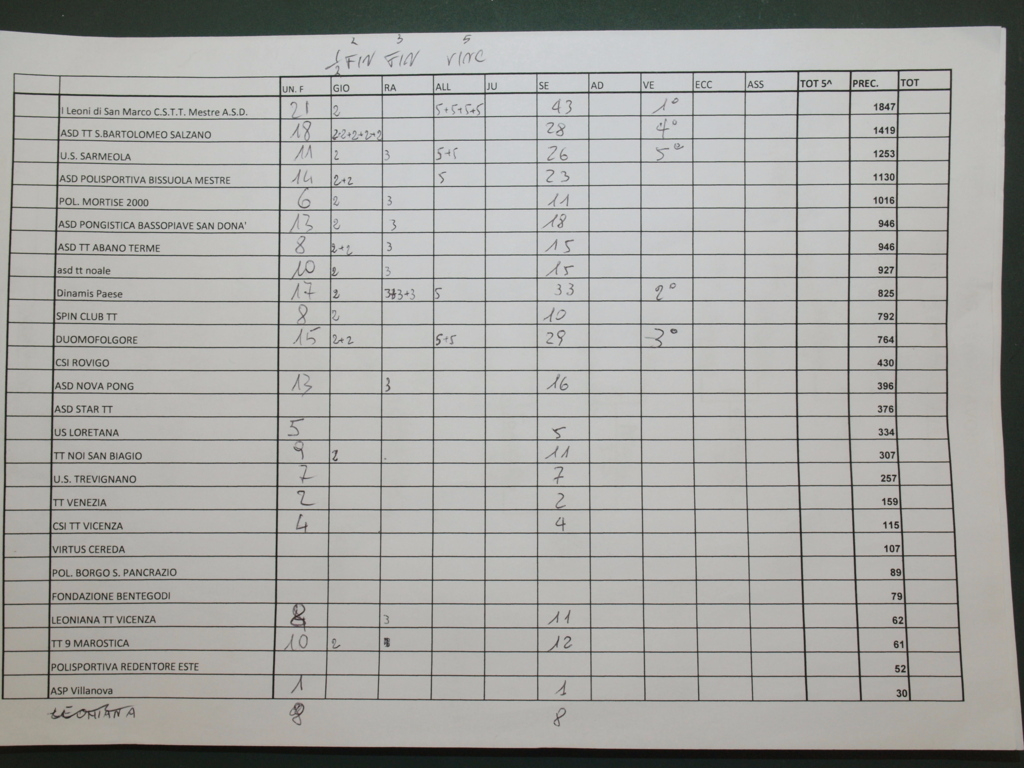 2 3 5
½ FIN FIN VINC
UN. F GIO RA ALL JU SE AD VE ECC ASS TOT 5^ PREC. TOT
I Leoni di San Marco C.S.T.T. Mestre A.S.D. 21 2 5+5+5+5 43 1° 1847
ASD TT S.BARTOLOMEO SALZANO 18 2+2+2+2+2 28 4° 1419
U.S. SARMEOLA 11 2 3 5+5 26 5° 1253
ASD POLISPORTIVA BISSUOLA MESTRE 14 2+2 5 23 1130
POL. MORTISE 2000 6 2 3 11 1016
ASD PONGISTICA BASSOPIAVE SAN DONA' 13 2 3 18 946
ASD TT ABANO TERME 8 2+2 3 15 946
asd tt noale 10 2 3 15 927
Dinamis Paese 17 2 3+3+3 5 33 2° 825
SPIN CLUB TT 8 2 10 792
DUOMOFOLGORE 15 2+2 5+5 29 3° 764
CSI ROVIGO 430
ASD NOVA PONG 13 3 16 396
ASD STAR TT 376
US LORETANA 5 5 334
TT NOI SAN BIAGIO 9 2 11 307
U.S. TREVIGNANO 7 7 257
TT VENEZIA 2 2 159
CSI TT VICENZA 4 4 115
VIRTUS CEREDA 107
POL. BORGO S. PANCRAZIO 89
FONDAZIONE BENTEGODI 79
LEONIANA TT VICENZA 8 3 11 62
TT 9 MAROSTICA 10 2 12 61
POLISPORTIVA REDENTORE ESTE 52
ASP Villanova 1 1 30
LEONIANA 8 8